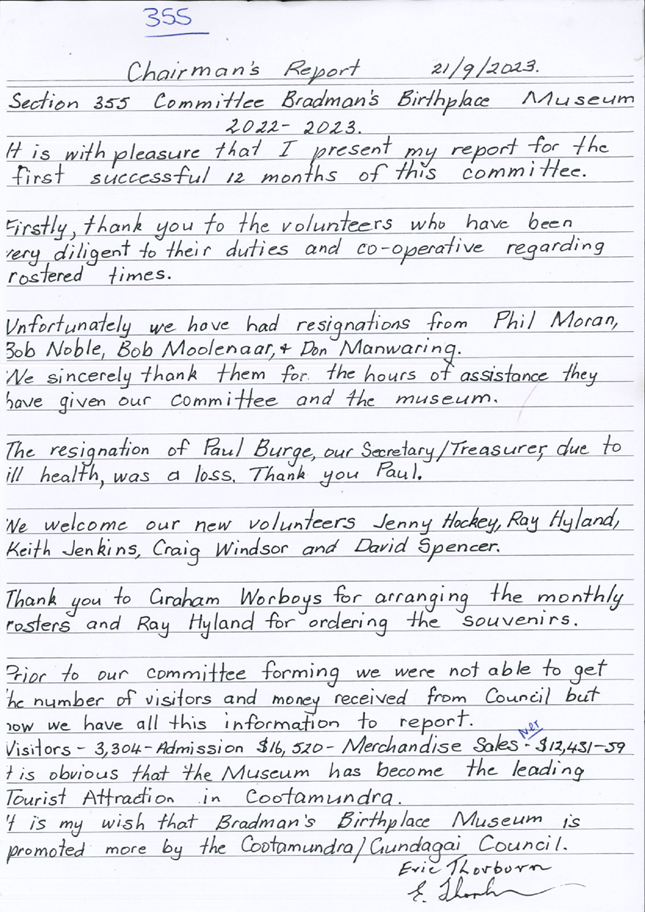 355
Chairman's Report 21/9/2023.
Section 355 Committee Bradman's Birthplace Museum
2022-2023.
It is with pleasure that I present my report for the
first successful 12 months of this committee.
Firstly, thank you to the volunteers who have been
very diligent to their duties and co-operative regarding
rostered times.
Unfortunately we have had resignations from Phil Moran,
Bob Noble, Bob Moolenaar, + Don Manwaring.
We sincerely thank them for the hours of assistance they
have given our committee and the museum.
The resignation of Paul Burge, our Secretary/Treasurer, due to
ill health, was a loss. Thank you Paul.
We welcome our new volunteers Jenny Hockey, Ray Hyland,
Keith Jenkins, Craig Windsor and David Spencer.
Thank you to Graham Worboys for arranging the monthly
rosters and Ray Hyland for ordering the souvenirs.
Prior to our committee forming we were not able to get
the number of visitors and money received from Council but
now we have all this information to report.
Net
Visitors - 3,304 - Admission $16,520 - Merchandise Sales - $12,431-59
It is obvious that the Museum has become the leading
Tourist Attraction in Cootamundra.
It is my wish that Bradman's Birthplace Museum is
promoted more by the Cootamundra/Gundagai Council.
Eric Thorburn